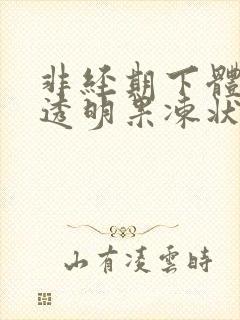 非經期下體
透明果凍狀
山有凌雲時